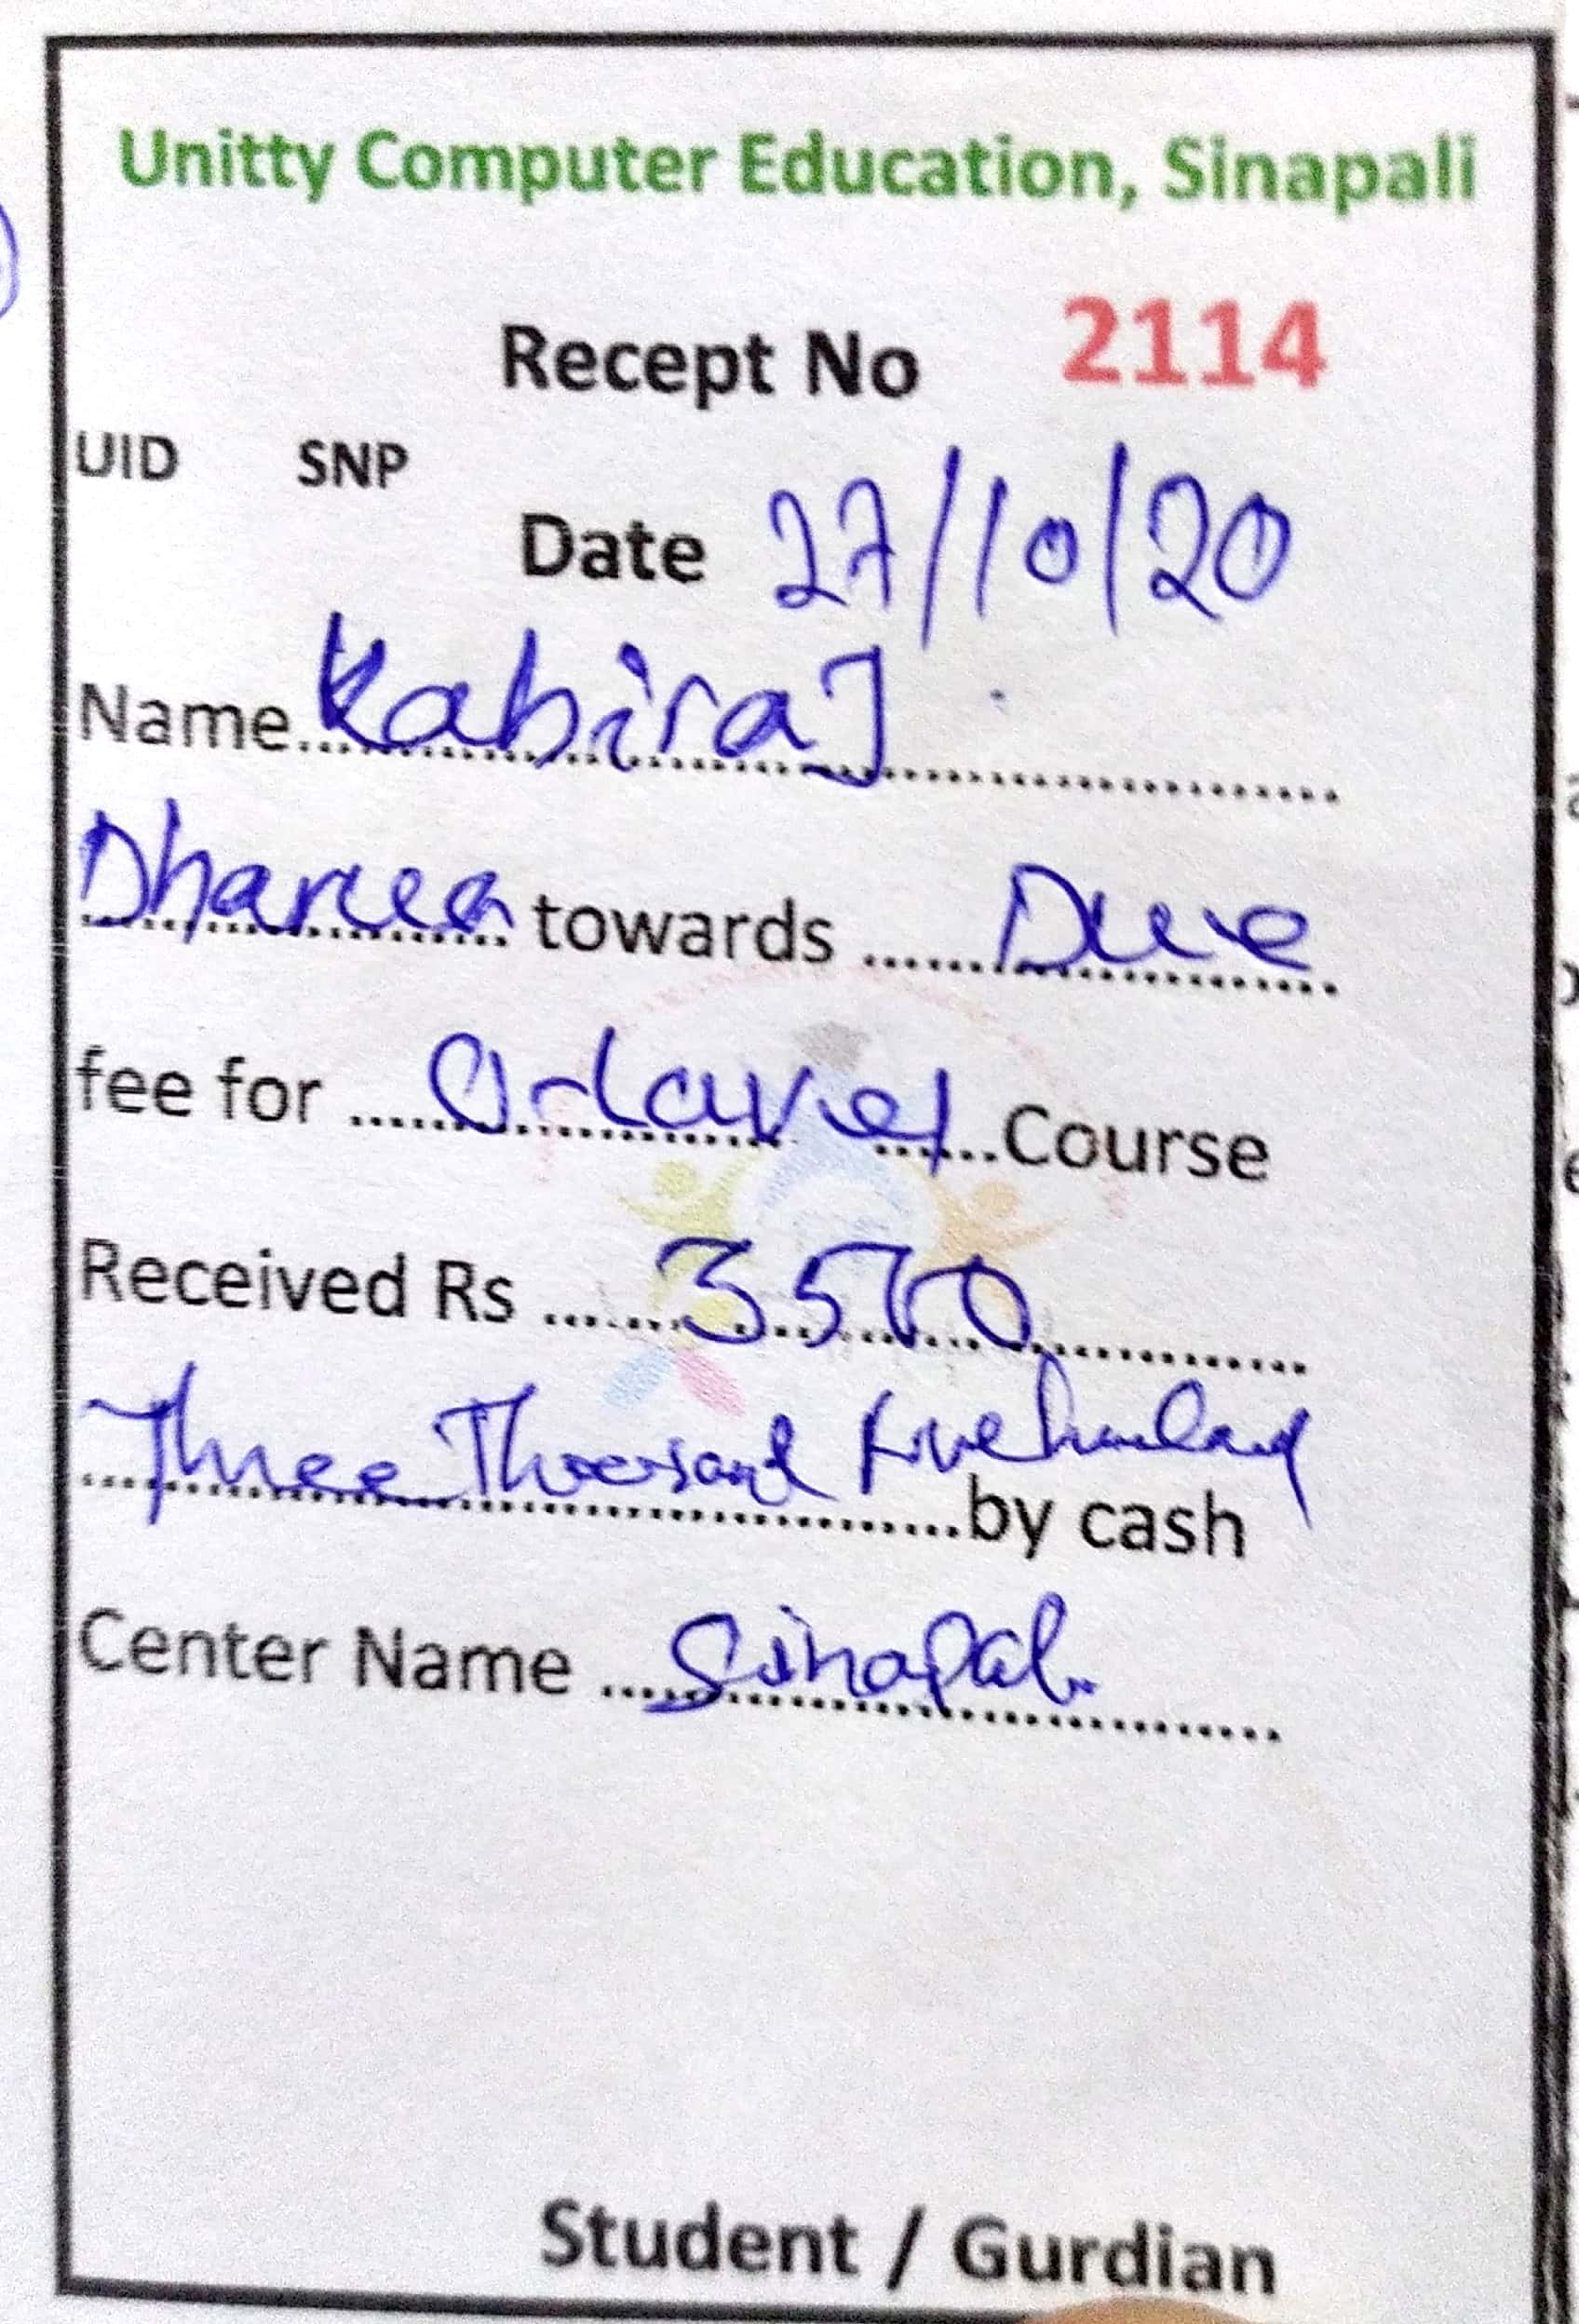 Unitty Computer Education, Sinapali
Recept No 2114
UID SNP
Date 27/10/20
Name Kabiraj
towards Due
fee for O-Lavel Course
Received Rs 3500
Three Thousand Five hundred
by cash
Center Name Sinapali
Student / Gurdian